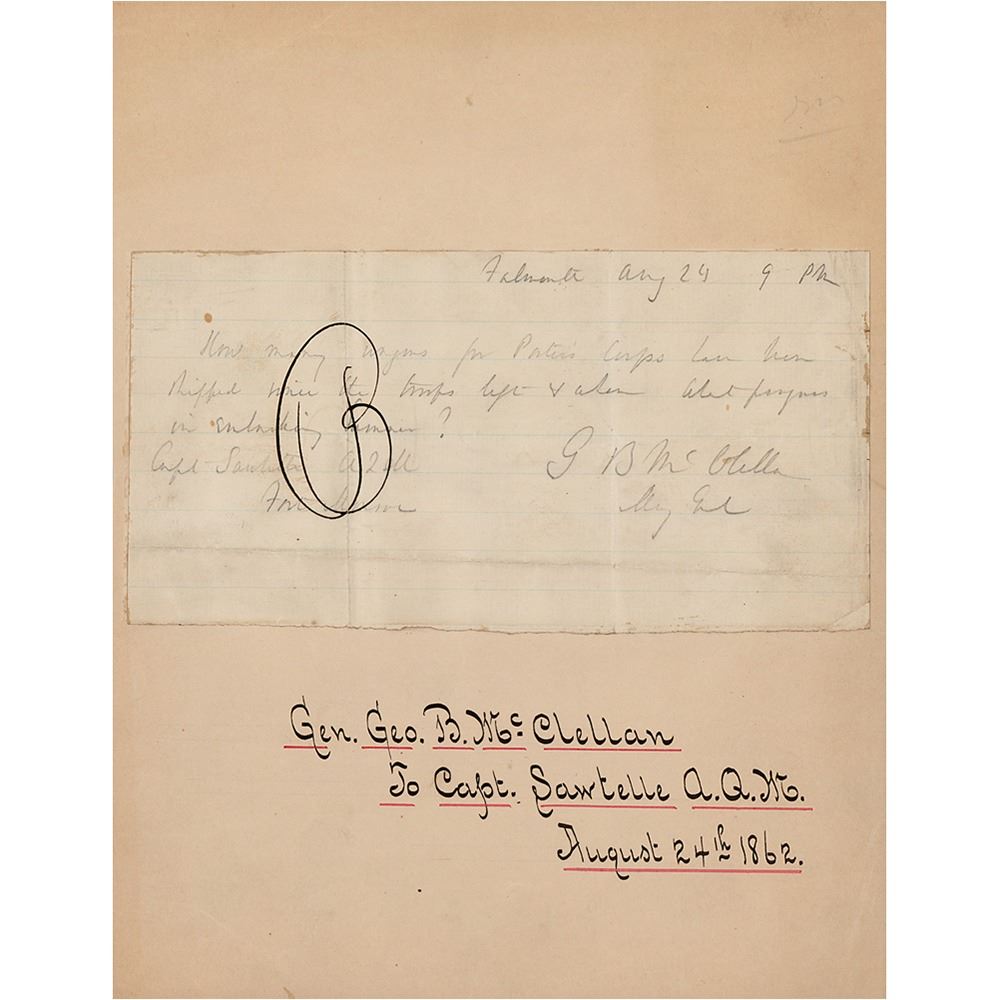 Falmouth Aug 24 9 PM
How many wagons for Porter's Corps have been
shipped since the troops left & when
in embarking ?
Capt Sawtelle A Q M
Fort Monroe
G B McClellan
Maj Genl
Gen. Geo. B. Mc Clellan
To Capt. Sawtelle A.Q.M.
August 24th 1862.